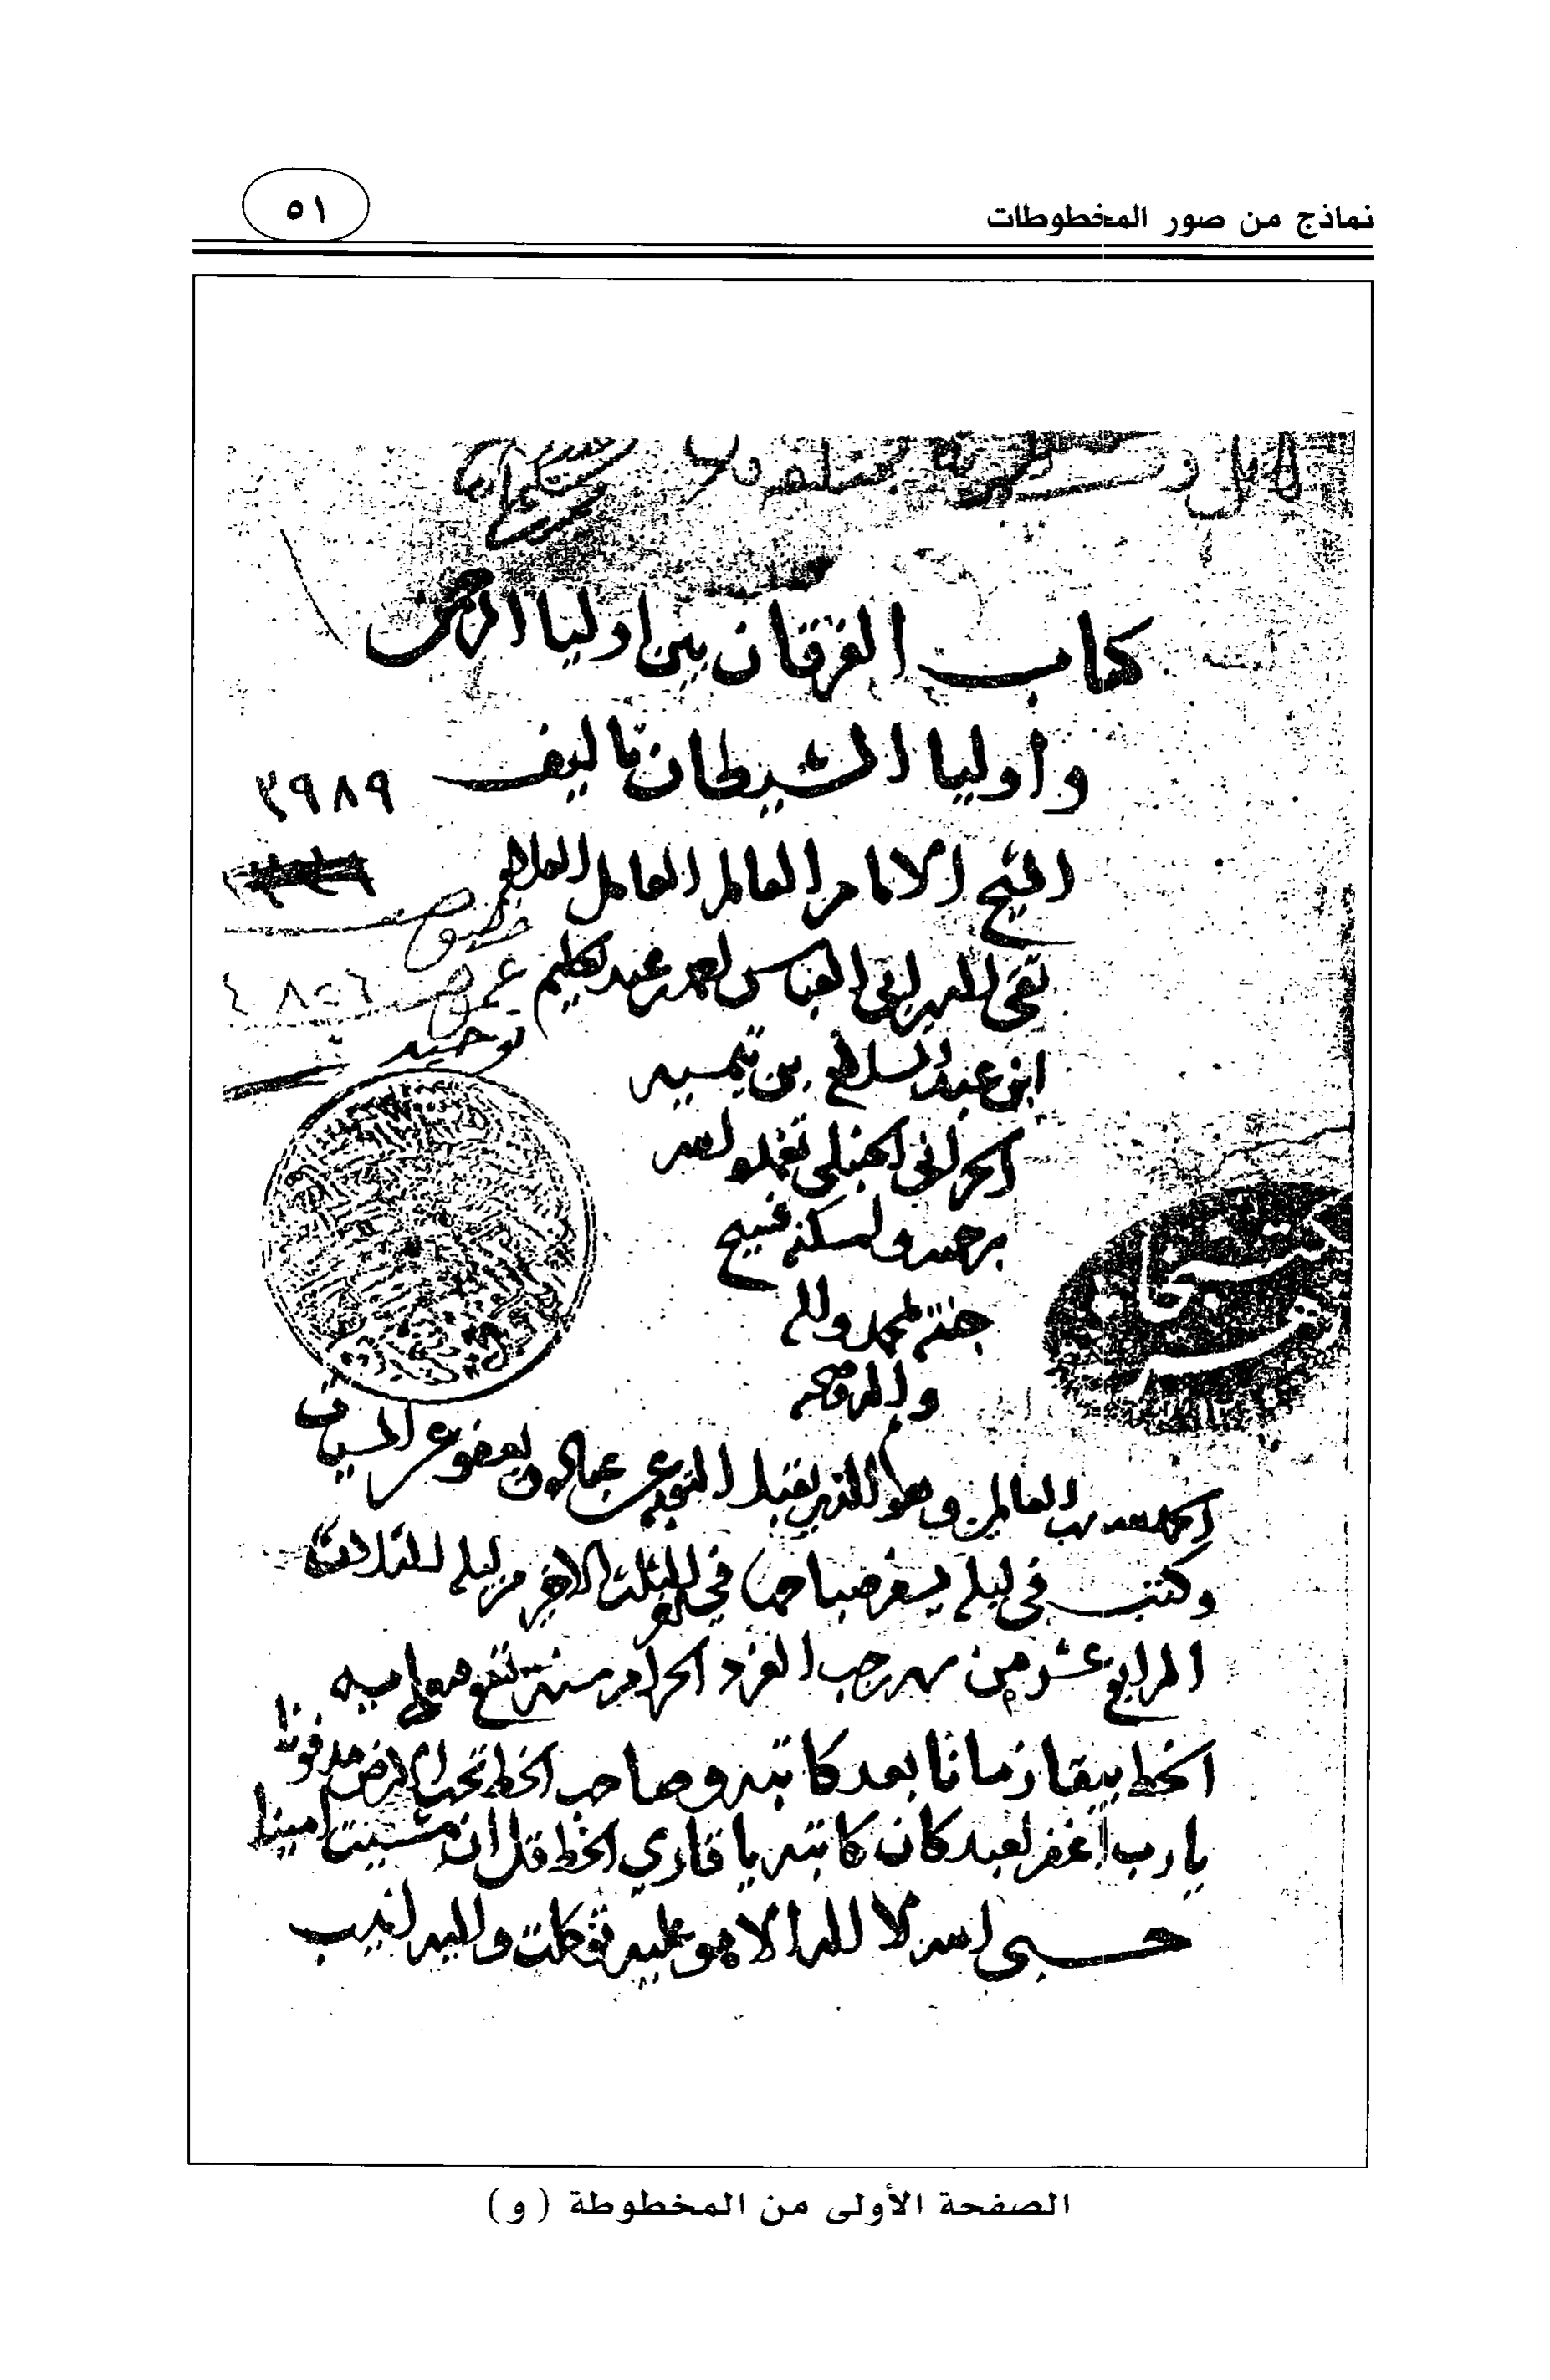 نماذج من صور المخطوطات
٥١
كتاب الفرقان بين اوليا الرحمن
واوليا الشيطان تاليف
٣٩٨٩
الشيخ الامام العالم العامل العلامة
خصوص
تقي الدين ابي العباس احمد بن عبد الحليم
عموم ٤٨٠٦
توحيد
ابن عبد السلام بن تيميه
الحراني الحنبلي تغمده الله
برحمته واسكنه فسيح
جنته بمحمد واله
والله وصحبه
الحمد لله رب العالمين وهو الذي يقبل التوبة عن عباده ويعفو عن السيات
وكتب في ليلة يسفر صباحها في الثلث الاخر من ليلة الثلاث
الرابع عشر من شهر رجب الفرد الحرام سنة تسع
الخط يبقا زمانا بعد كاتبه وصاحب الخط تحت الارض مدفونا
يا رب اغفر لعبد كان كاتبه يا قاري الخط قل ان شيت امينا
حسبي الله لا اله الا هو عليه توكلت واليه انيب
الصفحة الأولى من المخطوطة (و)